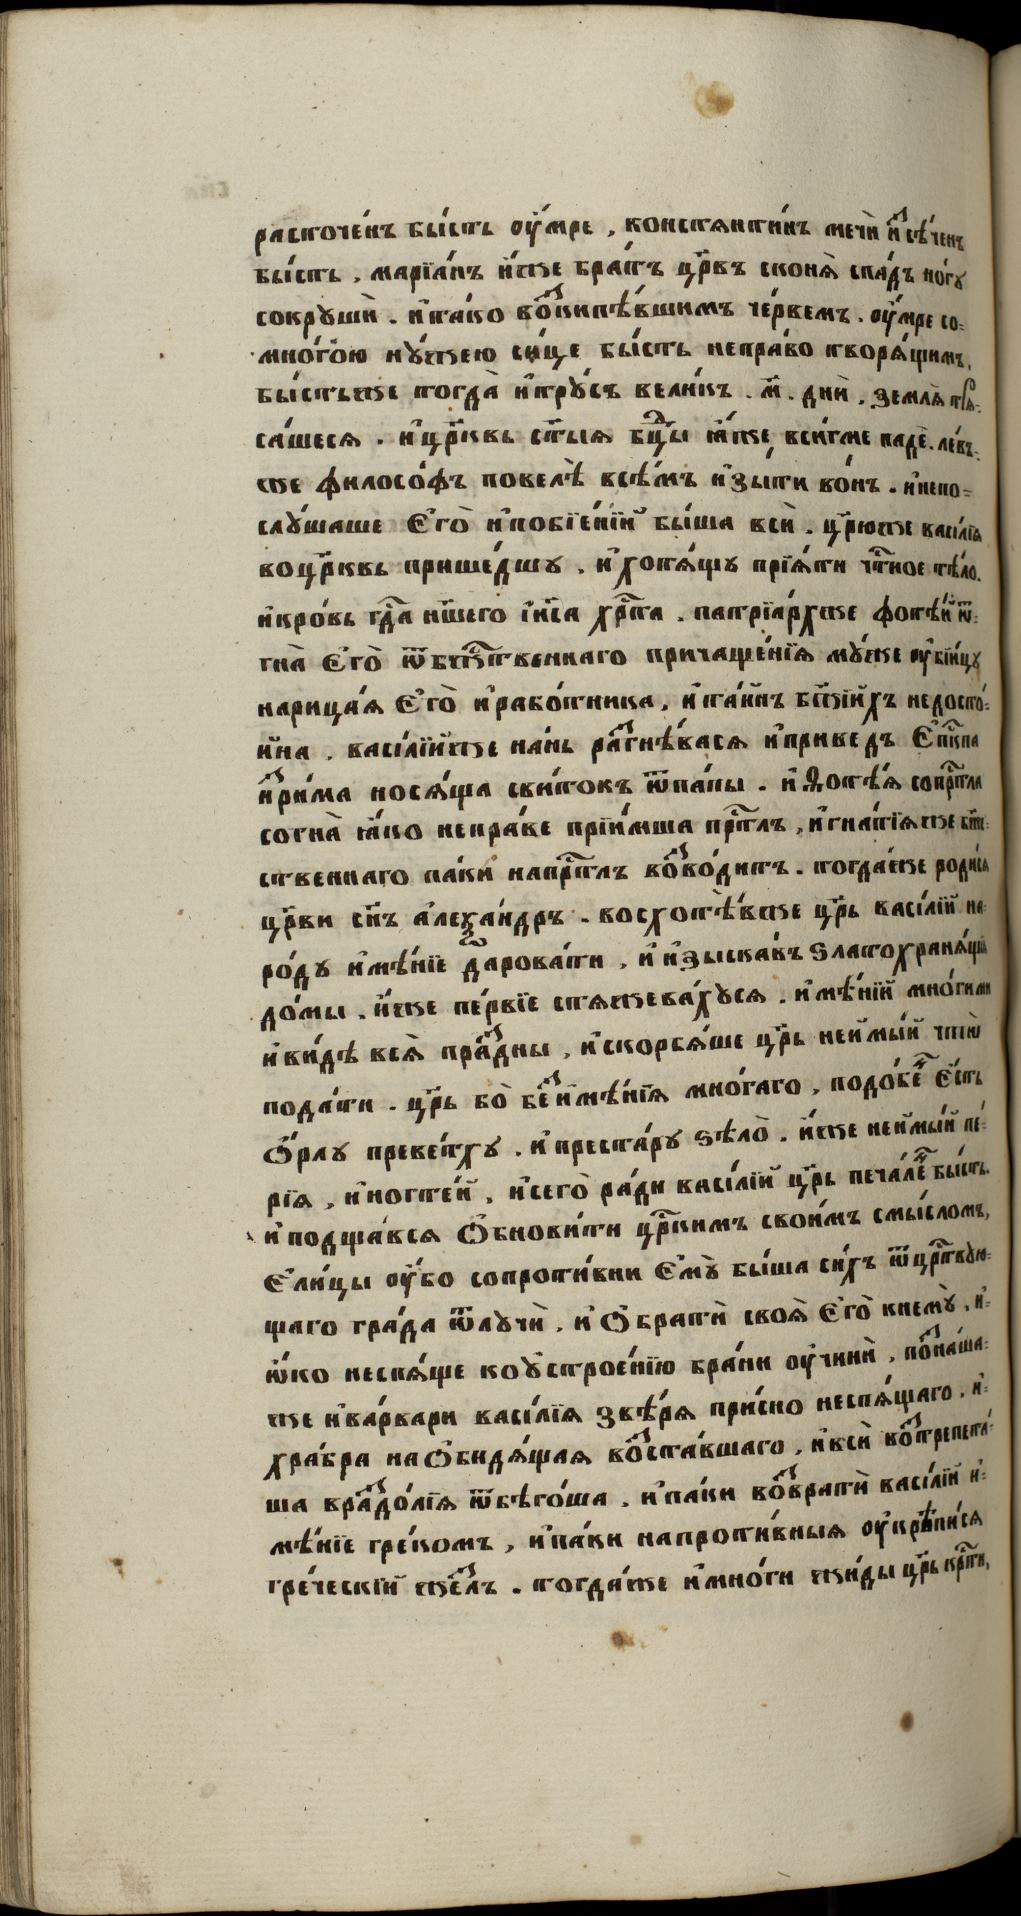 расточе́нъ бы́сть оу҆́мре , констѧнти́нъ мечи̑ и҆зсѣ́ченъ
бы́сть , марїа́нъ и҆́же бра́тъ цр҃въ сконѧ̀ спа́дъ но́гу
сокруши̑ . и҆та́ко воз̾кипѣ́вшимъ че́рвемъ . оу҆́мре со=
мно́гою ну́жею си́це бы́сть непра́во творѧ́щимъ,
бы́стьже тогда̀ и҆тру́съ вели́къ . м҃ . дни̑ . землѧ̀ трѧ=
са́шесѧ . и҆цр҃квь ст҃ы́ѧ бц҃ды ꙗ҆́же всигме паде̑ . ле́въ=
же филосо́фъ повелѣ̀ всѣ́мъ и҆зы́ти во́нъ . и҆непо=
слу́шаше Е҆го̀ и҆побїе́нїи бы́ша вси̑ . цр҃юже васи́лїѧ
воцр҃квь прише́дшу . и҆хотѧ́щу прїѧ́ти чт҃ное тѣ́ло.
и҆кро́вь гд҃а нш҃его і҆и҃са хр҃та . патрїа́рхже фотѣ́й ѿ=
гна̀ Е҆го̀ ѿбж҃ственнаго причаще́нїѧ му́же оу҆бі́йцу
нарица́ѧ Е҆го̀ и҆рабо́тника , и҆та́инъ бж҃їихъ недосто́=
йна . васі́лїйже на́нь разгнѣ́васѧ и҆приведъ Е҆пк҃па
и҆зри́ма носѧ́ща сви́токъ ѿпа́пы . и҆Фотѣ́ѧ сопр҃тла
согна̀ ꙗ҆́ко непра́ве прїи́мша пр҃тлъ , и҆гна́тїѧже бж҃е=
ственнаго па́ки напр҃тлъ воз̾во́дитъ . тогда́же роди́сѧ
цр҃ви сн҃ъ а҆леѯа́ндръ . восхотѣ́вже цр҃ь васі́лїй на
ро́ду и҆мѣ́нїе дарова́ти , и҆ и҆зыска́въ ѕлатохранѧ́щїѧ
до́мы . и҆́же пе́рвїе стѧжева́хусѧ . и҆мѣ́нїй мно́гими
и҆ви́дѣ всѧ̀ пра́здны , и҆скорбѧ́ше цр҃ь неимы́й что̀
пода́ти . цр҃ь бо̀ без̾имѣ́нїѧ мно́гаго , подо́бен Е҆́сть
Ѻ҆рлу преве́тху . и҆преста́ру ѕѣло̀ . и҆́же неимы́й пе́=
рїѧ , и҆ногте́й , и҆сего̀ ра́ди васі́лїй цр҃ь печа́лен бы́сть.
и҆подща́всѧ Ѻ҆бнови́ти цр҃кимъ свои́мъ смы́сломъ,
Е҆ли́цы оу҆́бо сопроти́вни Е҆му̀ бы́ша си́хъ ѿцр҃тву́ю=
щаго гра́да ѿлучи̑ . и҆ Ѻ҆брати̑ своѧ̀ Е҆го̀ кнему̀ . и҆=
ꙗ҆́ко неспѧ́ще коу҆строе́нїю бра́ни оу҆чини̑ , позна́ша=
же и҆ва́рвари васі́лїѧ ѕвѣ́рѧ при́сно неспѧ́щаго . и҆=
хра́бра наѺ҆бидѧ́щаѧ воз̾ста́вшаго , и҆вси̑ воз̾трепета́=
ша враз̾до́лїѧ ѿбѣго́ша , и҆па́ки воз̾врати̑ васі́лїй и҆=
мѣ́нїе гре́комъ , и҆па́ки напроти́вныѧ оу҆крѣпи́сѧ
гре́ческїй же́злъ . тогда́же и҆мно́ги жи́ды цр҃ь кр҃ти,